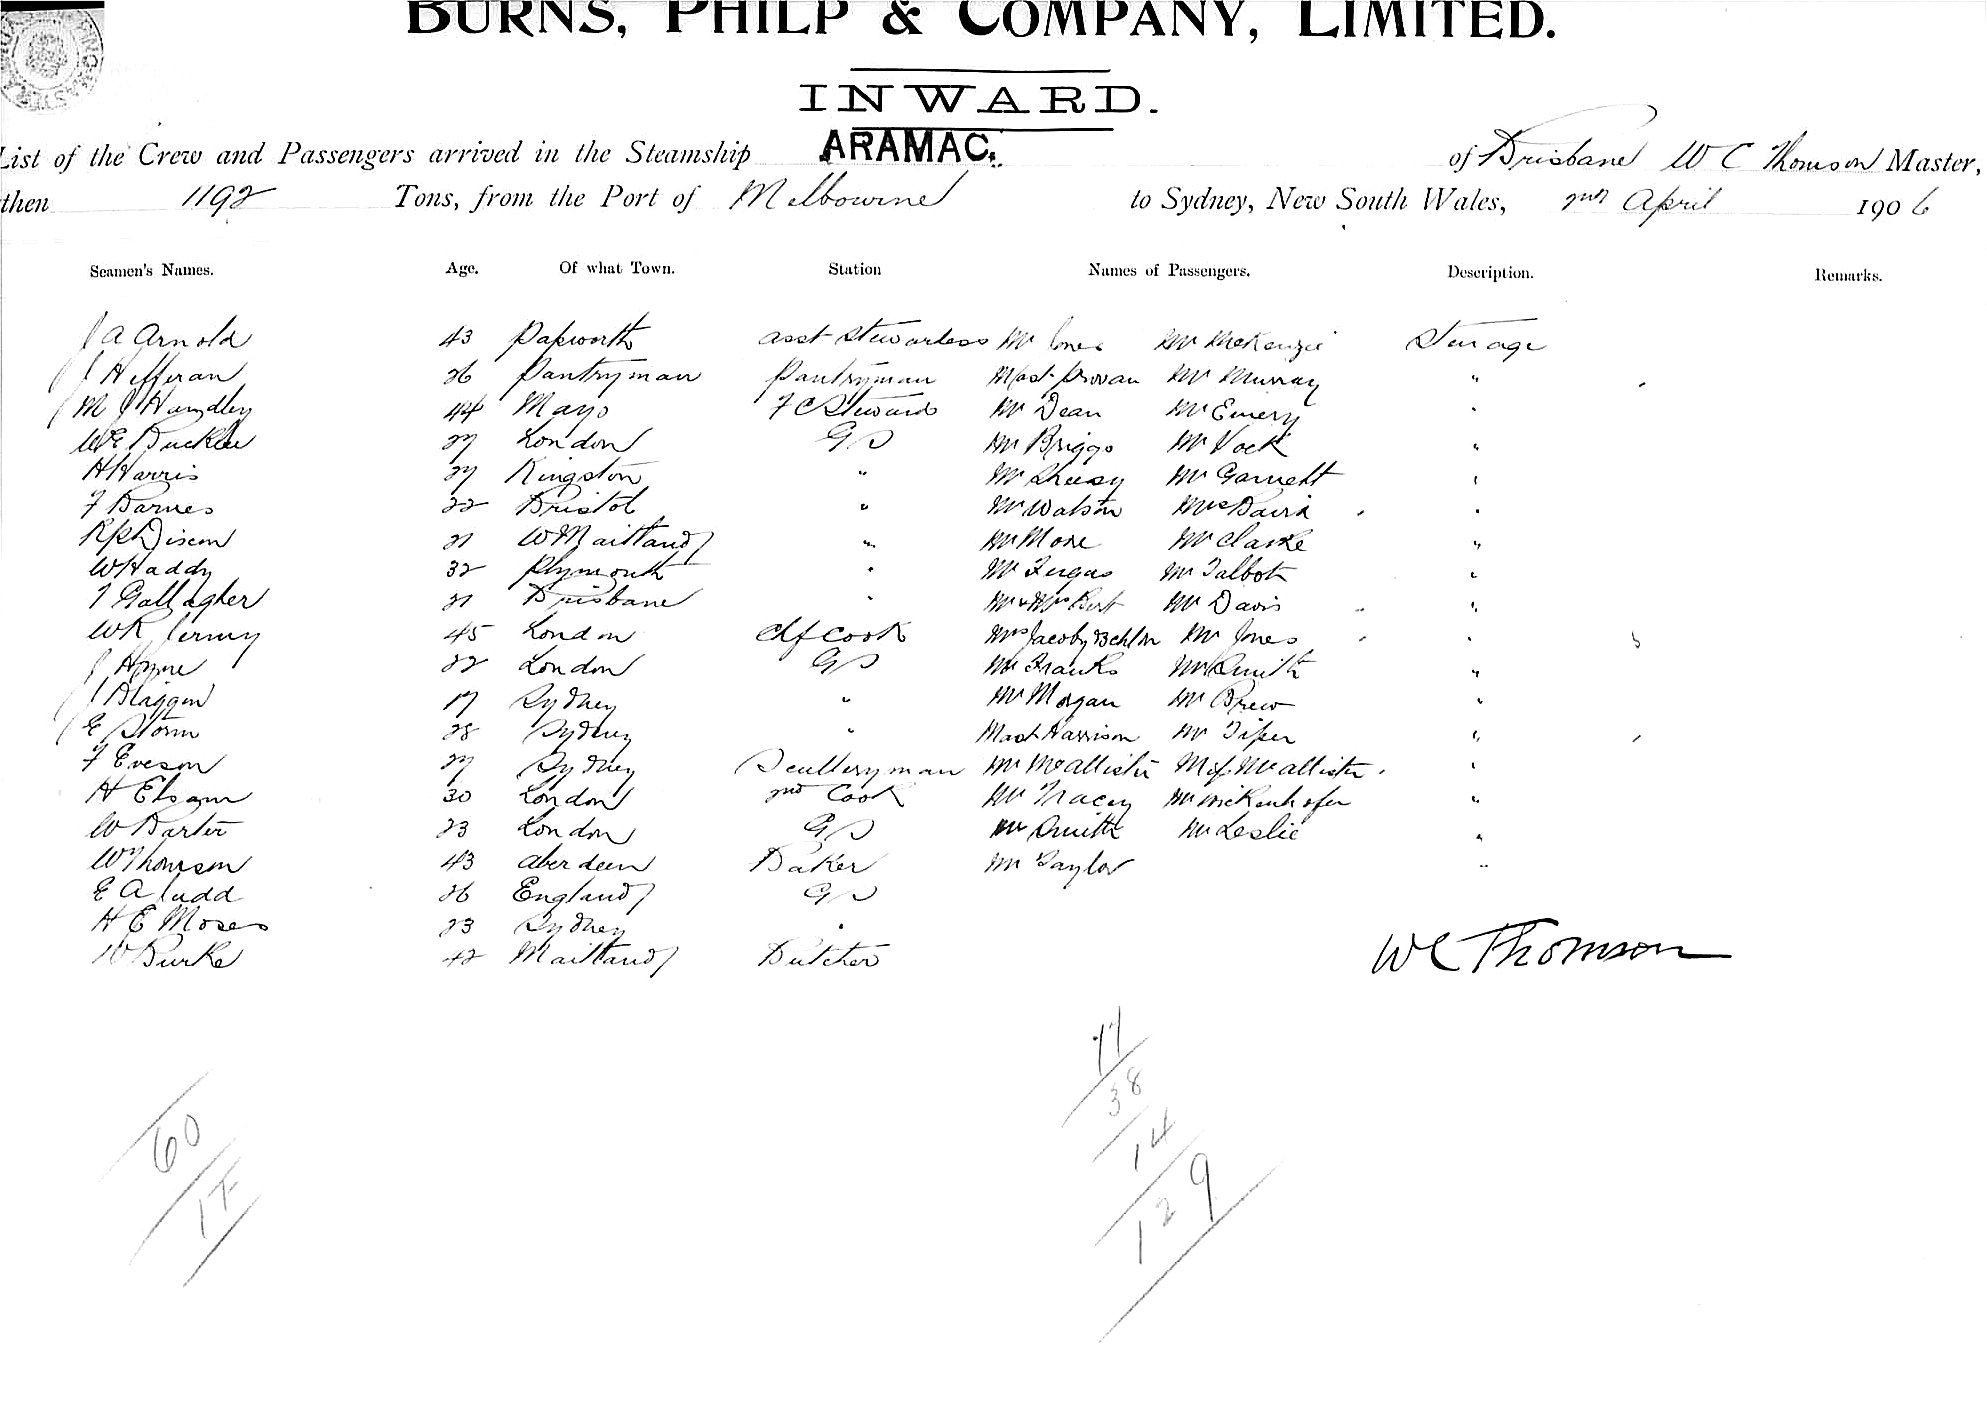 BURNS, PHILP & COMPANY, LIMITED.
INWARD.
List of the Crew and Passengers arrived in the Steamship ARAMAC. of Brisbane W C Thomson Master,
then 1192 Tons, from the Port of Melbourne to Sydney, New South Wales, 2nd April 1906
Seamen's Names. Age. Of what Town. Station Names of Passengers. Description. Remarks.
J A Arnold 43 Papworth asst Stewardess Mr Jones Mr McKenzie Steerage
J Hefferan 26 Pantryman Pantryman Mast Provan Mr Murray "
M J Handley 44 Mayo F C Steward Mr Dean Mr Emery "
W E Bucklee 27 London G S Mr Briggs Mr Vock "
H Harris 27 Kingston " Mr Sheesy Mr Garnett "
F Barnes 22 Bristol " Mr Watson Mrs Baird "
21 W Maitland " Mr More Mr Clarke "
W Haddy 32 Plymouth " Mr Fergus Mr Talbot "
T Gallagher 21 Brisbane " Mr & Mrs Bert Mr Davis "
W R Jermy 45 London Chf Cook Mrs Jacoby Mr Jones "
J 22 London G S Mr Franks Mr Smith "
J 17 Sydney " Mr Morgan Mr Brew "
E Storm 28 Sydney " Mast Harrison Mr Tiper "
F Eveson 27 Sydney Scullery man Mr McAllister Miss McAllister "
H Elsam 30 London 2nd Cook Mr Tracey "
W Barter 23 London G S Mr Smith Mr Leslie "
W Thomson 43 Aberdeen Baker Mr Taylor "
E A Judd 26 England G S
H E Moses 23 Sydney "
W Burke 42 Maitland Butcher
W C Thomson
77
38
14
129
60
17